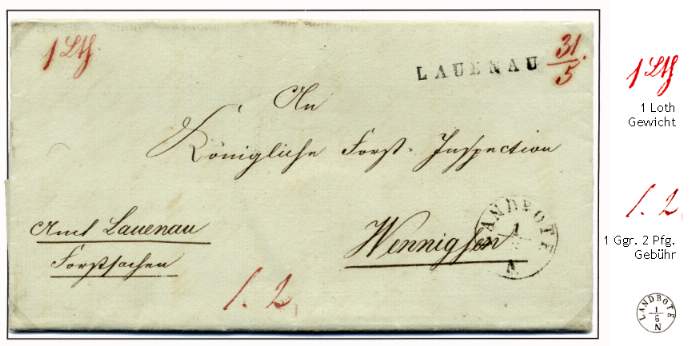 1 Lth
LAUENAU 31/5.
An
Königliche Forst-Inspection
Amt Lauenau
Forstsachen
Wennigsen
LANDBOTE
1/6
N
1. 2,
1 Lth
1 Loth
Gewicht
1. 2,
1 Ggr. 2 Pfg.
Gebühr
LANDBOTE
1/6
N